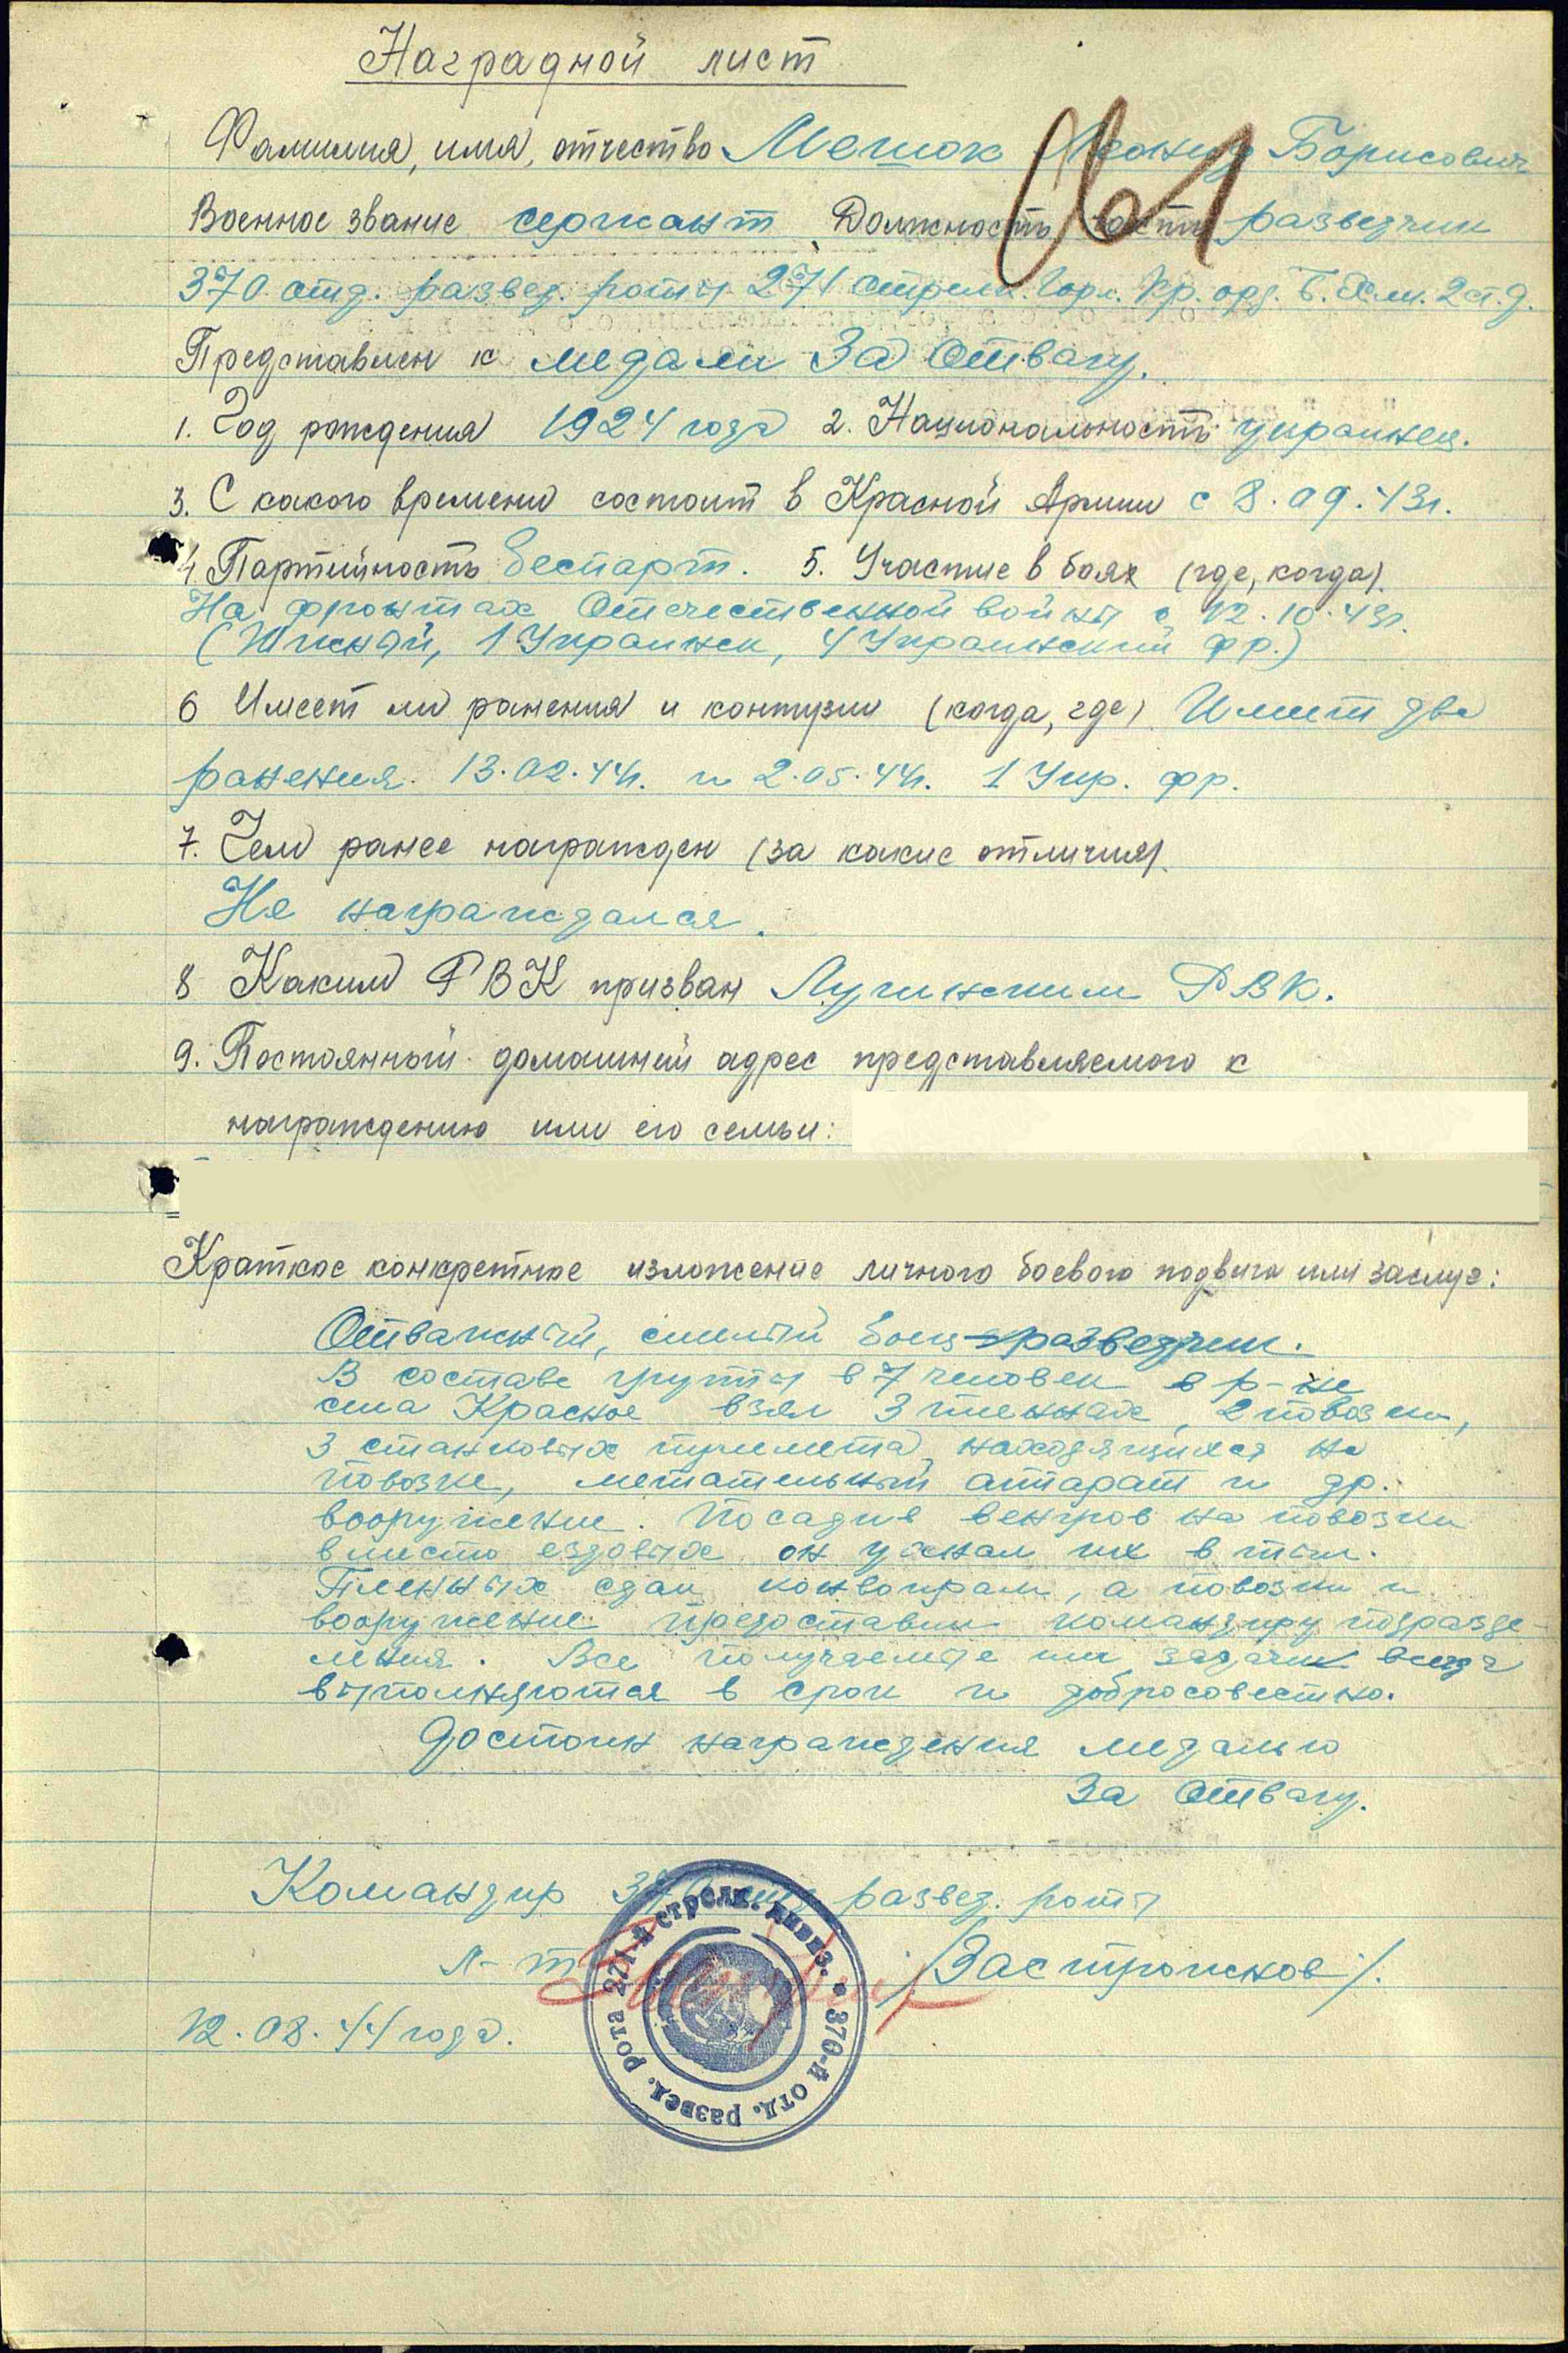 Наградной лист
Фамилия, имя, отчество Мешок Леонид Борисович
61
Военное звание сержант Должность, часть разведчик
370 отд. развед. роты 271 стрелк. Горл. Кр. орд. Б. Хм. 2 ст. д.
Представлен к медали За Отвагу.
1. Год рождения 1924 года 2. Национальность украинец.
3. С какого времени состоит в Красной Армии с 8.09.43г.
4. Партийность беспарт. 5. Участие в боях (где, когда).
На фронтах Отечественной войны с 12.10.43г.
(Южный, 1 Украинск, 4 Украинский фр.)
6 Имеет ли ранения и контузии (когда, где) Имеет два
ранения 13.02.44г. и 2.05.44г. 1 Укр. фр.
7. Чем ранее награжден (за какие отличия).
Не награждался.
8 Каким РВК призван Лугинским РВК.
9. Постоянный домашний адрес представляемого к
награждению или его семьи:
Краткое конкретное изложение личного боевого подвига или заслуг:
Отважный, смелый боец-разведчик.
В составе группы в 7 человек в р-не
села Красное взял 3 пленных, 2 повозки,
3 станковых пулемета, находящихся на
повозке, метательный аппарат и др.
вооружение. Посадив венгров на повозки
вместо ездовых он угнал их в тыл.
Пленных сдал конвоирам, а повозки и
вооружение предоставил командиру подразде-
ления. Все получаемые им задачи всегда
выполняются в срок и добросовестно.
Достоин награждения медалью
За Отвагу.
Командир 370 отд. развед. роты
л-т /Застрожнов/.
12.08.44 года.
370-й отд. развед. рота 271-й стрелк. дивиз.